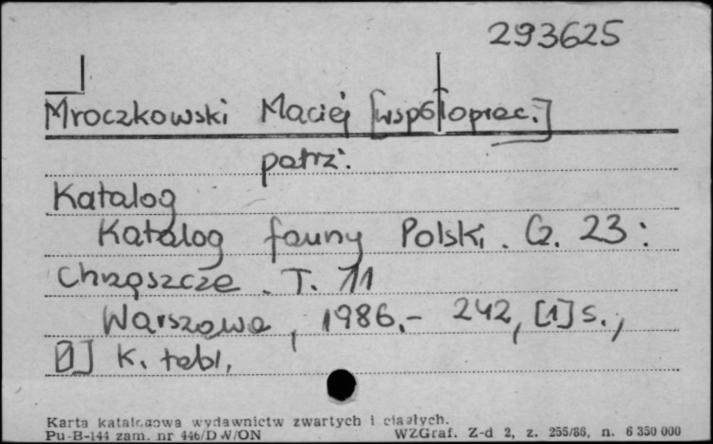 293625
Mroczkowski Maciej [współoprac.]
patrz:
Katalog
Katalog fauny Polski. Cz. 23:
Chrząszcze. T. 11
Warszawa, 1986.- 242, [1] s.,
k. tabl.
Karta katalogowa wydawnictw zwartych i ciągłych.
Pu-B-144 zam. nr 446/D W/ON WZGraf. Z-d 2, z. 255/86, n. 6 350 000